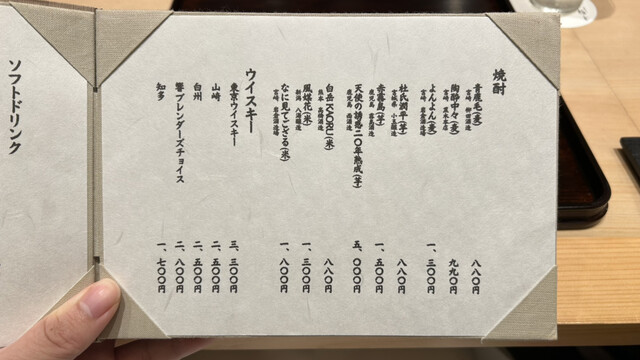 焼酎
青鹿毛(麦) 八八〇円
宮崎 柳田酒造
陶酔中々(麦) 九九〇円
宮崎 黒木本店
よんよん(麦) 一、三〇〇円
宮崎 岩倉酒造場
杜氏潤平(芋) 八八〇円
宮崎県 小玉醸造
赤霧島(芋) 一、五〇〇円
鹿児島 霧島酒造
天使の誘惑二〇年熟成(芋) 五、〇〇〇円
鹿児島 西酒造
白岳KAORU(米) 八八〇円
熊本 高橋酒造
風媒花(米) 一、三〇〇円
新潟 八海醸造
なに見てござる(米) 一、八〇〇円
宮崎 岩倉酒造場
ウイスキー
東京ウイスキー 三、三〇〇円
山崎 二、五〇〇円
白州 二、五〇〇円
響ブレンダーズチョイス 二、八〇〇円
知多 一、七〇〇円
ソフトドリンク